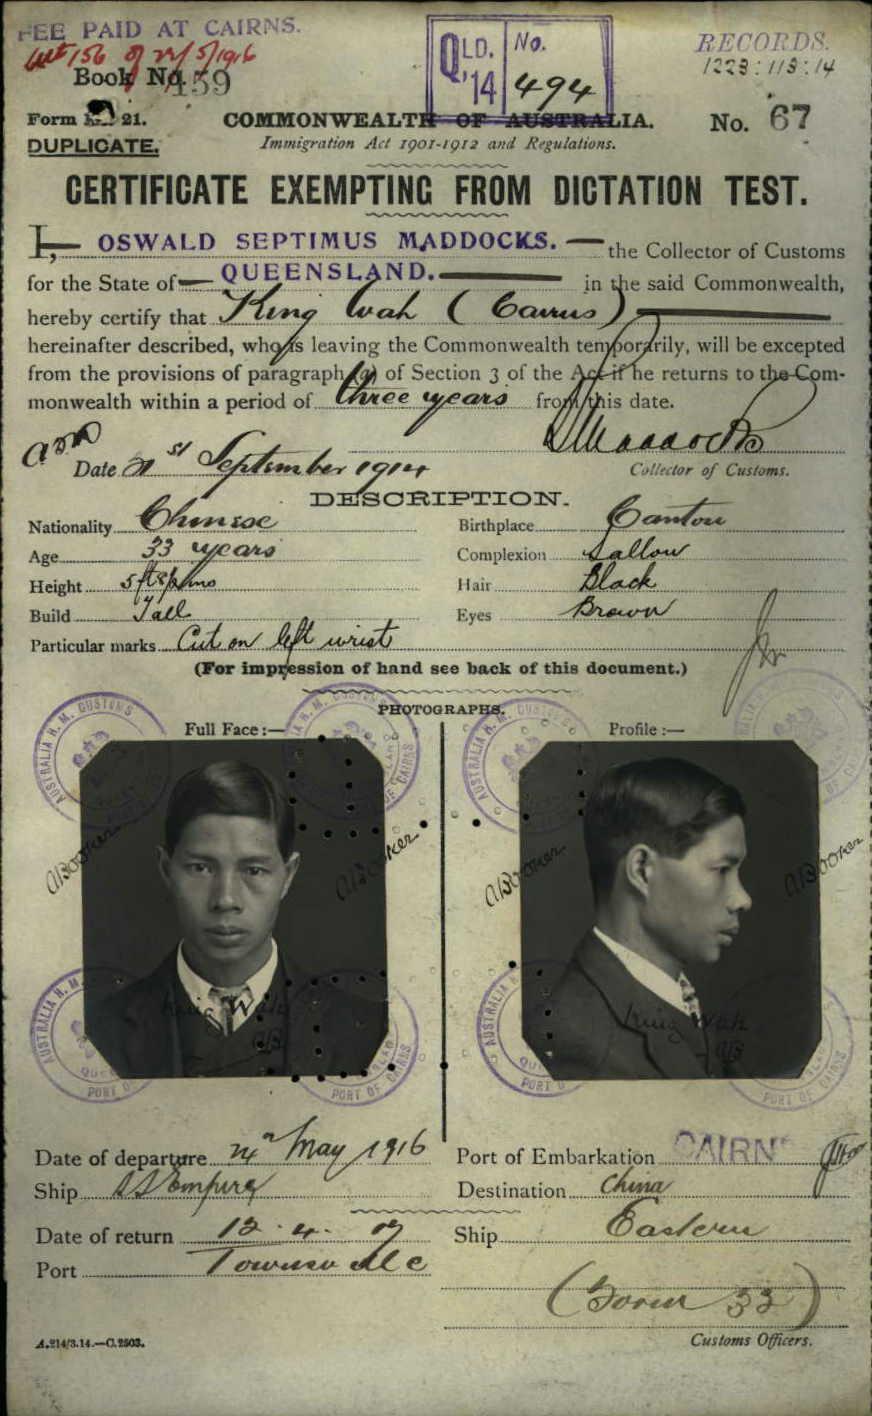 FEE PAID AT CAIRNS.
of 24/5/1916
Book No. 459
QLD. No.
'14 494
RECORDS.
1223:113:14
Form 21.
COMMONWEALTH OF AUSTRALIA.
No. 67
DUPLICATE.
Immigration Act 1901-1912 and Regulations.
CERTIFICATE EXEMPTING FROM DICTATION TEST.
I, OSWALD SEPTIMUS MADDOCKS. the Collector of Customs
for the State of QUEENSLAND. in the said Commonwealth,
hereby certify that King Wah (Cairns)
hereinafter described, who is leaving the Commonwealth temporarily, will be excepted
from the provisions of paragraph (a) of Section 3 of the Act if he returns to the Com-
monwealth within a period of three years from this date.
Date 21st September 1914
Maddocks
Collector of Customs.
DESCRIPTION.
Nationality Chinese Birthplace Canton
Age 33 years Complexion Sallow
Height 5 ft 8½ ins Hair Black
Build Tall Eyes Brown
Particular marks Cut on left wrist
(For impression of hand see back of this document.)
PHOTOGRAPHS.
Full Face :— Profile :—
AUSTRALIA H. M. CUSTOMS
PORT OF CAIRNS
King Wah
King Wah
Date of departure 24th May 1916 Port of Embarkation CAIRNS
Ship SS Empire Destination China
Date of return 12.4.17 Ship Eastern
Port Townsville
(Form 33)
A.214/3.14.—C.2503.
Customs Officers.